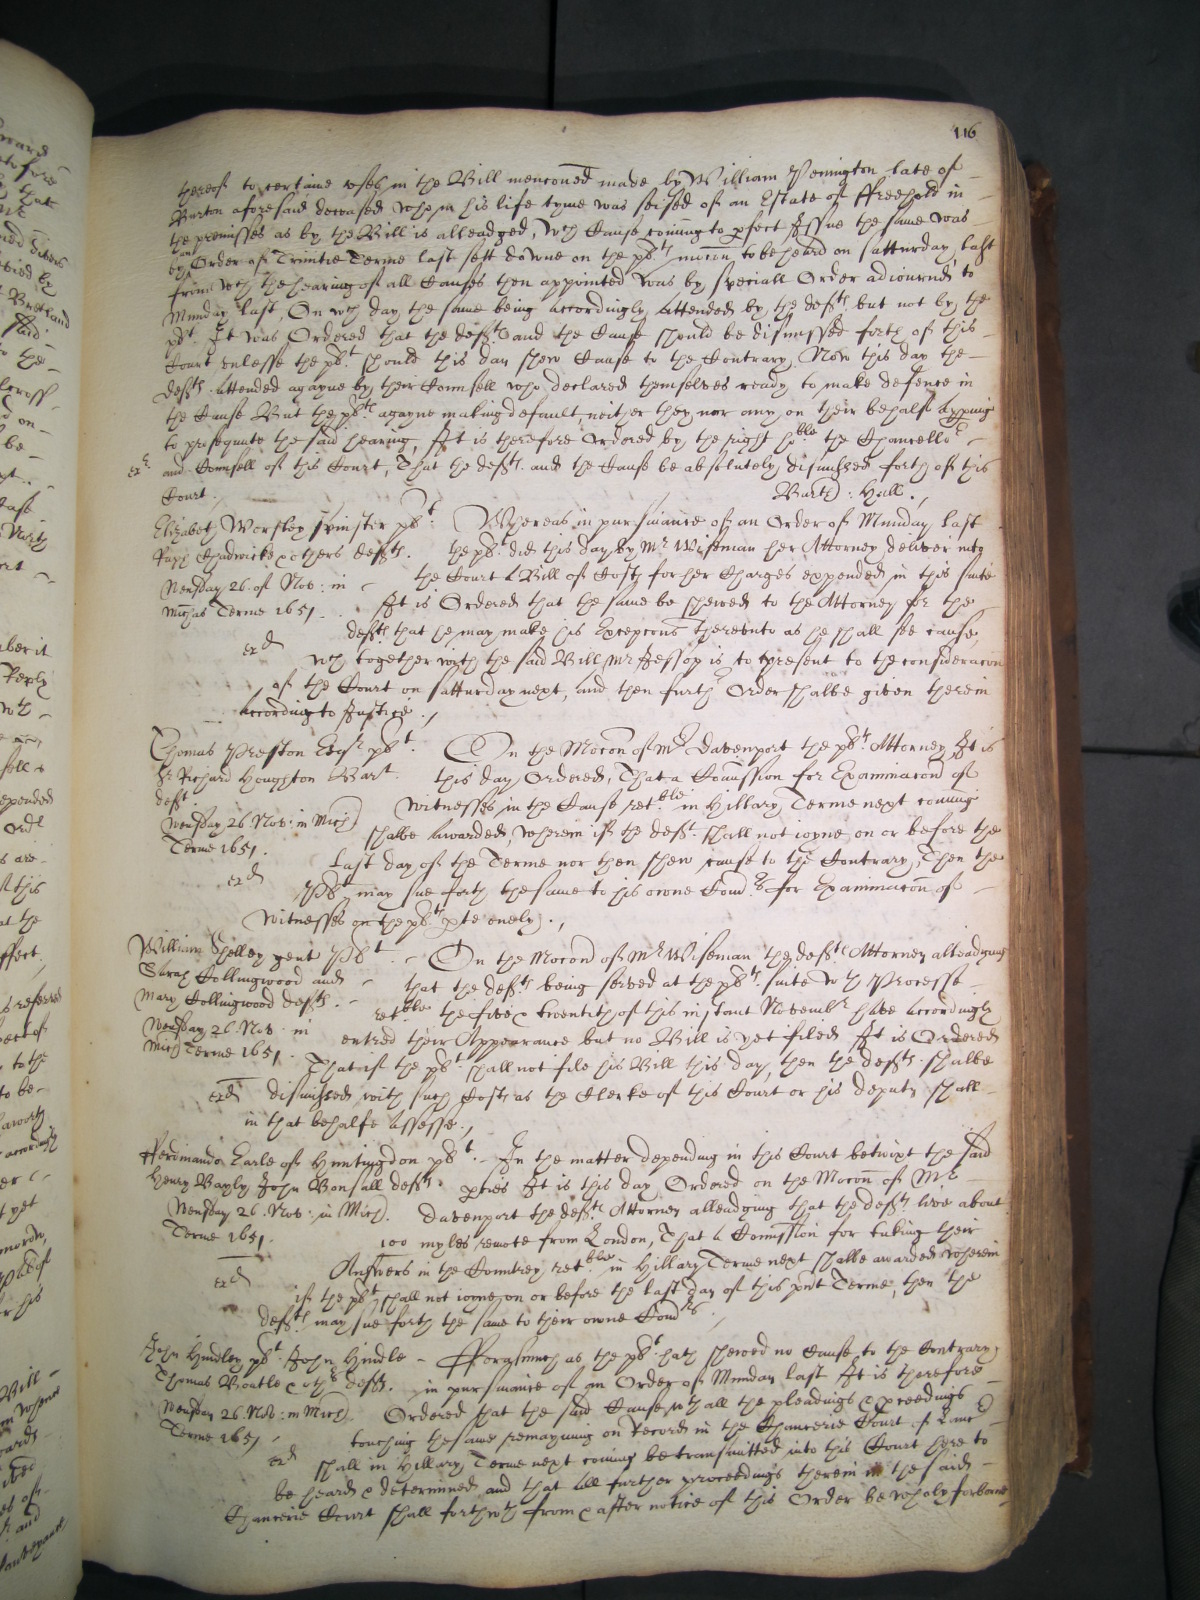 116
thereof to certaine uses in the Bill menconed made by William Penington late of
Barton aforesaid deceased who in his life tyme was seised of an Estate of ffreehold in
the premisses as by the Bill is alleadged, wch Cause coming to pfect Issue the same was
by an Order of Trinitie Terme last sett downe on the plts mocon to be heard on Satturday last
from wch the hearing of all Causes then appointed was by speciall Order adiourned to
Munday last, On wch day the same being accordingly attended by the defts but not by the
plt It was Ordered that the defts and the Cause should be dismissed forth of this
Court unlesse the plt should this day shew Cause to the Contrary, Now this day the
defts attended agayne by their Counsell who declared themselves ready to make defence in
the Cause But the plts agayne making default, neither they nor any on their behalf appring
to prosequute the said hearing, It is therefore Ordered by the right hoble the Chancellor
exr. and Counsell of this Court, That the defts and the Cause be absolutely dismissed forth of this
Court. Barth: Hall.,
Elizabeth Worsley spinster plt. Whereas in pursuance of an Order of Munday last
Raph Chadwicke & others defts. the plt did this day by Mr Wiseman her Attorney deliver into
Wensday 26. of Nov: in the Court a Bill of Costs for her Charges expended in this suite
Michas Terme 1651. It is Ordered that the same be shewed to the Attorney for the
defts that he may make his Excepcons thereunto as he shall see cause,
exd wch together with the said Bill Mr Jessop is to present to the consideracon
of the Court on Satturday next, and then further Order shalbe given therein
according to Justice.,
Thomas Preston Esqr plt. On the Mocon of Mr Davenport the plts Attorney It is
Sr Richard Houghton Bart. this day Ordered, That a Comission for Examinacon of
deft. witnesses in the Cause retble in Hillary Terme next coming
Wensday 26. Nov: in Mich shalbe awarded, wherein if the deft. shall not ioyne on or before the
Terme 1651. last day of the Terme nor then shew cause to the Contrary, Then the
exd Plt may sue forth the same to his owne Comrs for Examinacon of
witnesses on the plts pte onely.,
William Shelley gent Plt. On the Mocon of Mr Wiseman the defts Attorney alleadging
Sarah Collingwood and that the defts being served at the plts suite wth Processe
Mary Collingwood defts. retble the five & twentith of this instant Novembr have accordingly
Wensday 26. Nov: in entred their Appearance but no Bill is yet filed It is Ordered
Mich Terme 1651. That if the plt shall not file his Bill this day, then the defts shalbe
exd dismissed with such Costs as the Clerke of this Court or his deputy shall
in that behalfe assesse.,
fferdinando Earle of Huntingdon plt. In the matter depending in this Court betwixt the said
Henry Bayly John Bonsall defts. pties It is this day Ordered on the Mocon of Mr
Wensday 26. Nov: in Mich. Davenport the defts Attorney alleadging that the defts live about
Terme 1651. 100 myles remote from London, That a Comission for taking their
Answers in the Countrey retble in Hillary Terme next shalbe awarded wherein
exd if the plt shall not ioyne on or before the last day of this pnt Terme, then the
defts may sue forth the same to their owne Comrs.
John Hindley plt John Hindle fforasmuch as the plt hath shewed no Cause to the Contrary
Thomas Boatle & othrs defts. in pursuance of an Order of Munday last It is therefore
Wensday 26. Nov: in Mich. Ordered that the said Cause wth all the pleadings & pceedings
Terme 1651. touching the same remayning on Record in the Chancerie Court of Lancr
exd shall in Hillary Terme next coming be transmitted into this Court here to
be heard & determined and that all further proceedings therein in the said
Chancerie Court shall forthwth from & after notice of this Order be wholy forborne